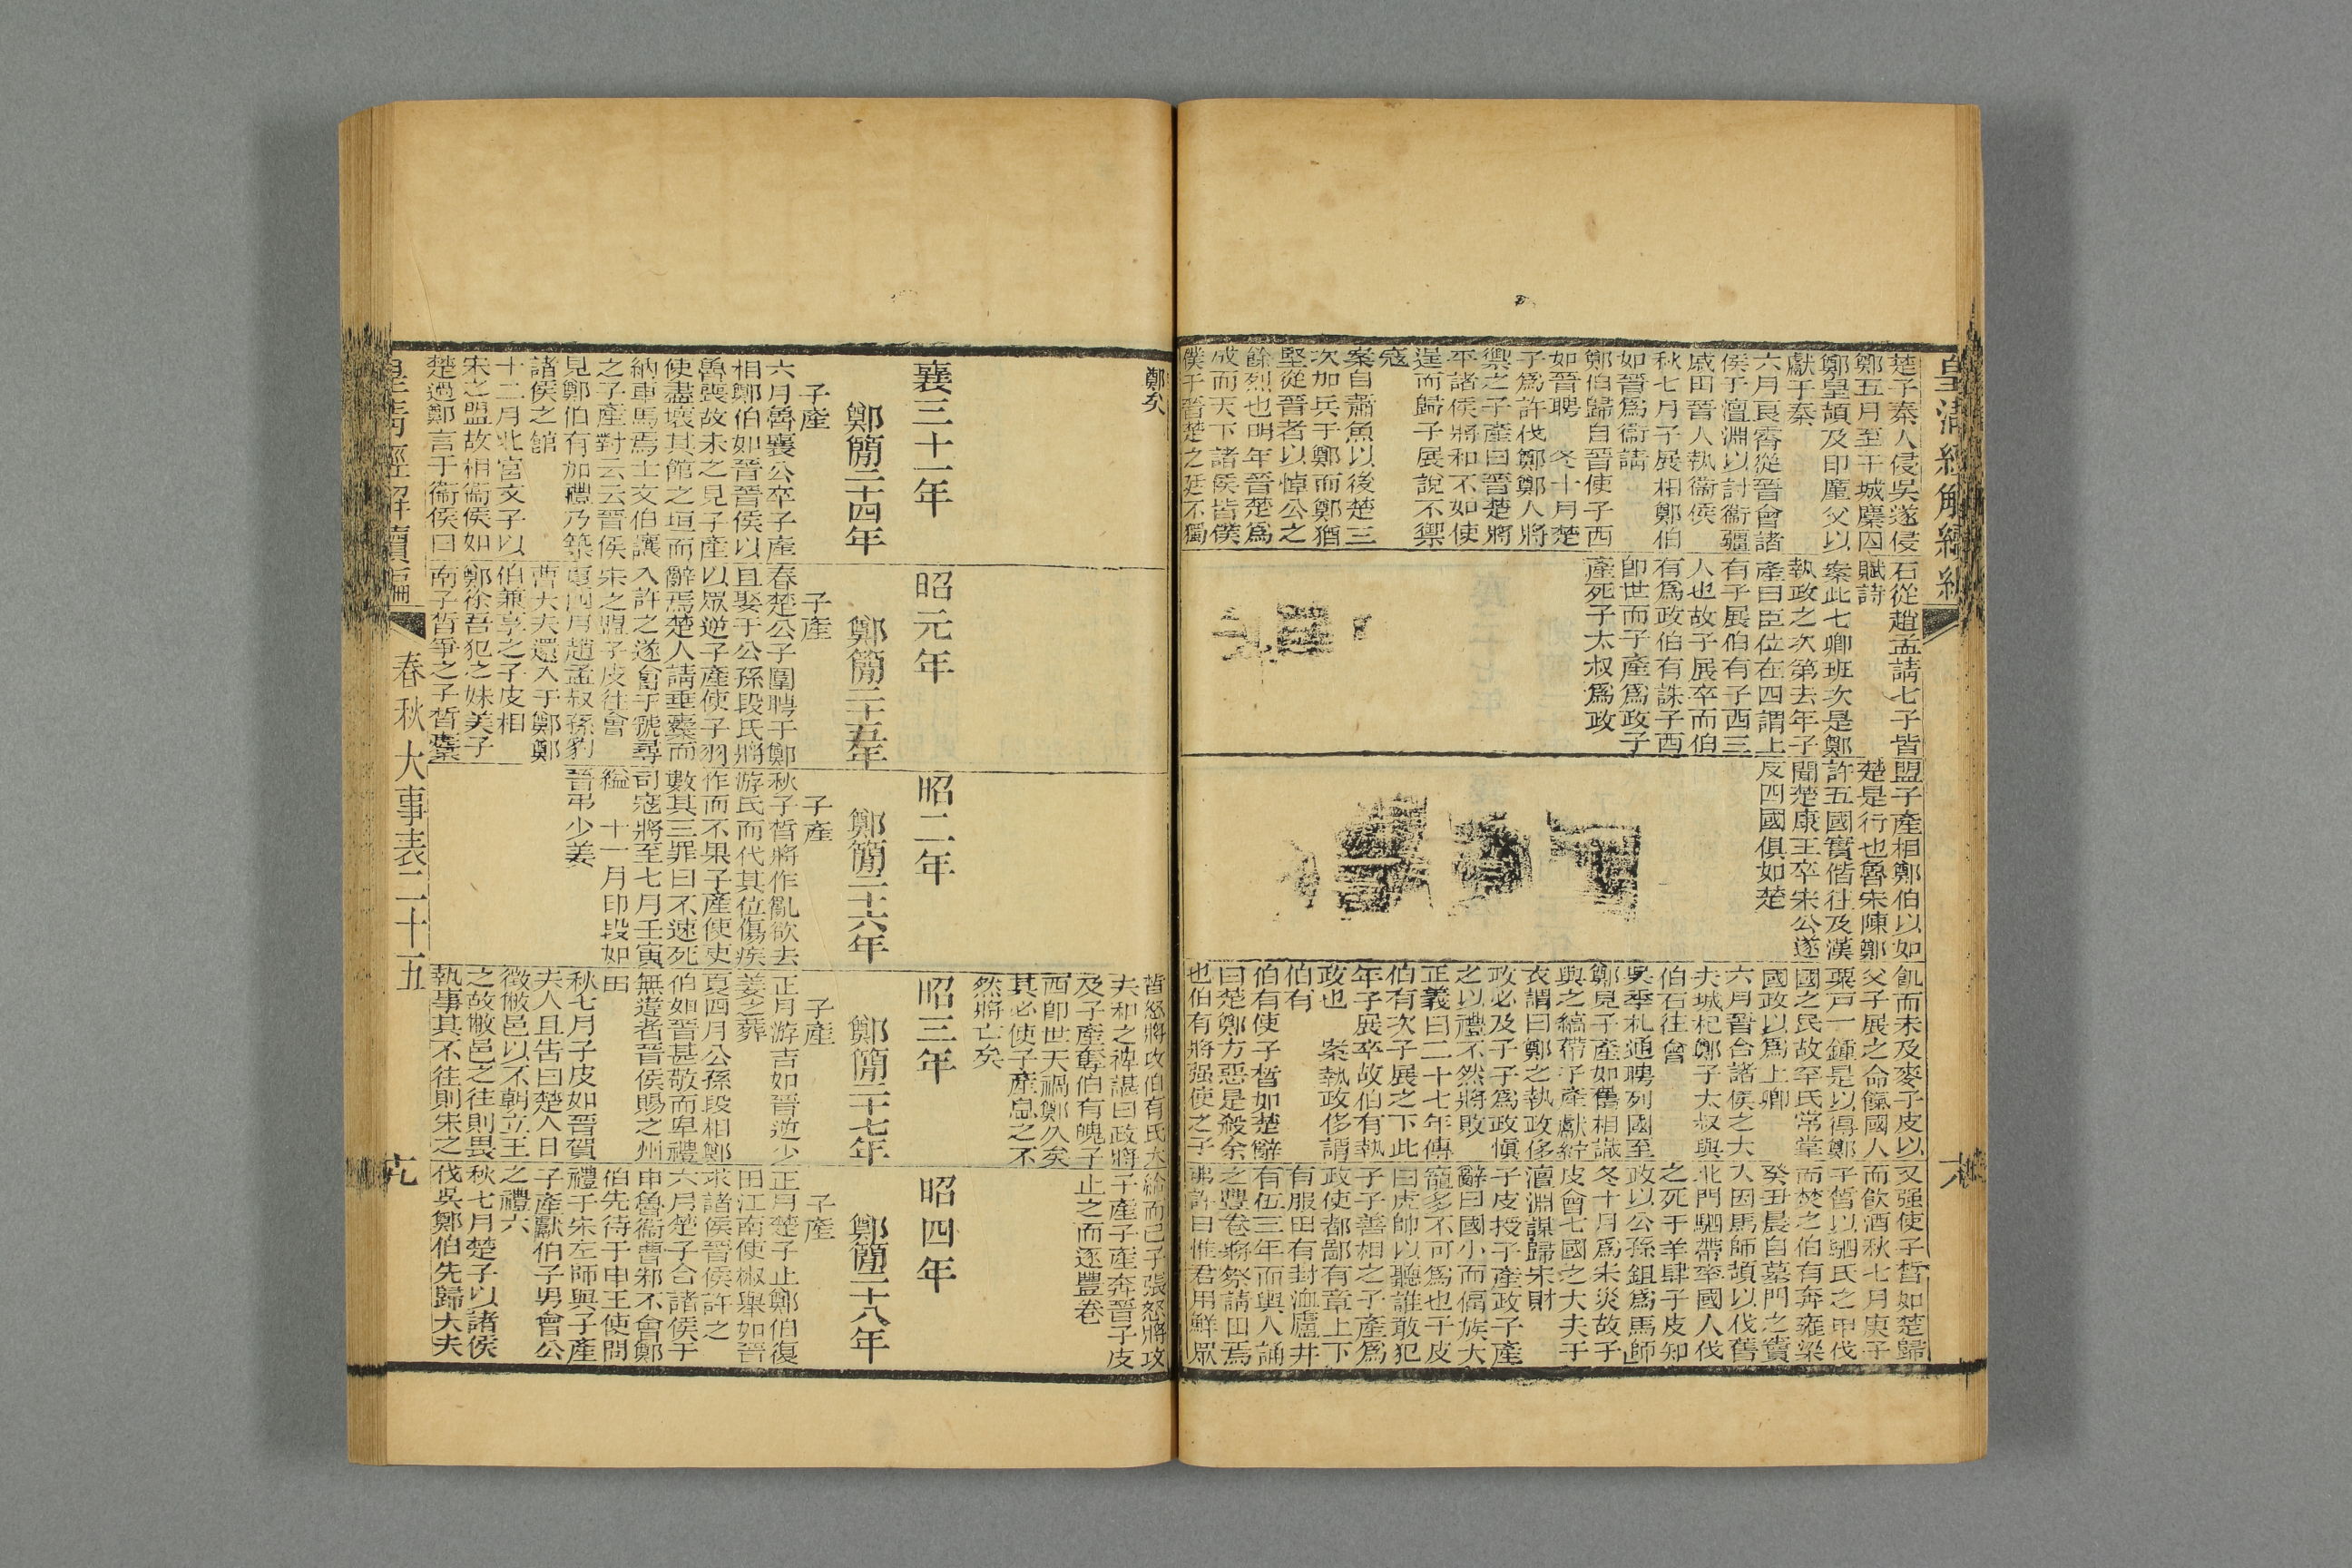 楚子秦人侵吳遂侵
鄭五月至于城麇囚
鄭皇頡及印堇父以
獻于秦
六月良霄從晉會諸
侯于澶淵以討衞疆
戚田晉人執衞侯
秋七月子展相鄭伯
如晉爲衞請
鄭伯歸自晉使子西
如晉聘　冬十月楚
子爲許伐鄭鄭人將
禦之子產曰晉楚將
平諸侯將和不如使
逞而歸子展說不禦
寇
案自蕭魚以後楚三
次加兵于鄭而鄭猶
堅從晉者以悼公之
餘烈也明年晉楚爲
成而天下諸侯皆僕
僕于晉楚之廷不獨
石從趙孟請七子皆
賦詩
案此七卿班次是鄭
執政之次第去年子
產曰臣位在四謂上
有子展伯有子西三
人也故子展卒而伯
有爲政伯有誅子西
卽世而子產爲政子
產死子太叔爲政
盟子產相鄭伯以如
楚是行也魯宋陳鄭
許五國實偕往及漢
聞楚康王卒宋公遂
反四國俱如楚
飢而未及麥子皮以
父子展之命餼國人
粟戸一鍾是以得鄭
國之民故罕氏常掌
國政以爲上卿
六月晉合諸侯之大
夫城杞鄭子太叔與
伯石往會
吳季札通聘列國至
鄭見子產如舊相識
與之縞帶子產獻紵
衣謂曰鄭之執政侈
政必及子子爲政愼
之以禮不然將敗
正義曰二十七年傳
伯有次子展之下此
年子展卒故伯有執
政也　案執政侈謂
伯有
伯有使子晳如楚辭
曰楚鄭方惡是殺余
也伯有將强使之子
又强使子晳如楚歸
而飮酒秋七月庚子
子晳以駟氏之甲伐
而焚之伯有奔雍梁
癸丑晨自墓門之竇
入因馬師頡以伐舊
北門駟帶率國人伐
之死于羊肆子皮知
政以公孫鉏爲馬師
冬十月爲宋災故子
皮會七國之大夫于
澶淵謀歸宋財
子皮授子產政子產
辭曰國小而偪族大
寵多不可爲也子皮
曰虎帥以聽誰敢犯
子子善相之子產爲
政使都鄙有章上下
有服田有封洫廬井
有伍三年而輿人誦
之豐卷將祭請田焉
弗許曰惟君用鮮眾
鄭矣
晳怒將攻伯有氏大
夫和之裨諶曰政將
及子產奪伯有魄子
西卽世天禍鄭久矣
其必使子產息之不
然將亡矣
給而已子張怒將攻
子產子產奔晉子皮
止之而逐豐卷
襄三十一年
鄭簡二十四年
子產
六月魯襄公卒子產
相鄭伯如晉晉侯以
魯喪故未之見子產
使盡壞其館之垣而
納車馬焉士文伯讓
之子產對云云晉侯
見鄭伯有加禮乃築
諸侯之館
十二月北宮文子以
宋之盟故相衞侯如
楚過鄭言于衞侯曰
昭元年
鄭簡二十五年
子產
春楚公子圍聘于鄭
且娶于公孫段氏將
以眾逆子產使子羽
辭焉楚人請垂櫜而
入許之遂會于虢尋
宋之盟子皮往會
夏四月趙孟叔孫豹
曹大夫還入于鄭鄭
伯兼享之子皮相
鄭徐吾犯之妹美子
南子晳爭之子晳櫜
昭二年
鄭簡二十六年
子產
秋子晳將作亂欲去
游氏而代其位傷疾
作而不果子產使吏
數其三罪曰不速死
司寇將至七月壬寅
縊　十一月印段如
晉弔少姜
昭三年
鄭簡二十七年
子產
正月游吉如晉逆少
姜之葬
夏四月公孫段相鄭
伯如晉甚敬而卑禮
無違者晉侯賜之州
田
秋七月子皮如晉賀
夫人且告曰楚人日
徵敝邑以不朝立王
之故敝邑之往則畏
執事其不往則宋之
昭四年
鄭簡二十八年
子產
正月楚子止鄭伯復
田江南使椒舉如晉
求諸侯晉侯許之
六月楚子合諸侯于
申魯衞曹邾不會鄭
伯先待于申王使問
禮于宋左師與子產
子產獻伯子男會公
之禮六
秋七月楚子以諸侯
伐吳鄭伯先歸大夫
皇淸經解續編
春秋大事表二十五